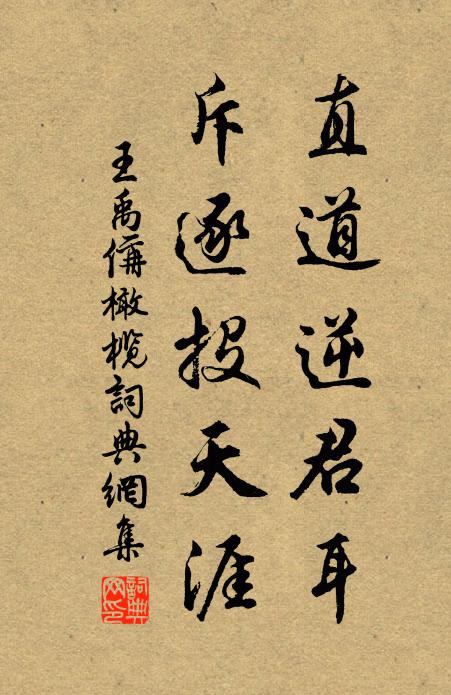 直道逆君耳
斥逐投天涯
王禹偁橄榄詞典網集
詞典網印